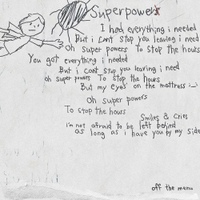 Superpowers
I had everything i needed
But i cant stop you leaving i need
Oh super powers To stop the hours
You got everything i needed
But i cant stop you leaving i need
oh super powers To stop the hours
But my eyes on the mattress
Oh super powers
To stop the hours
Smiles & Cries
i'm not afraid to be left behind
as long as i have you by my side
off the menu